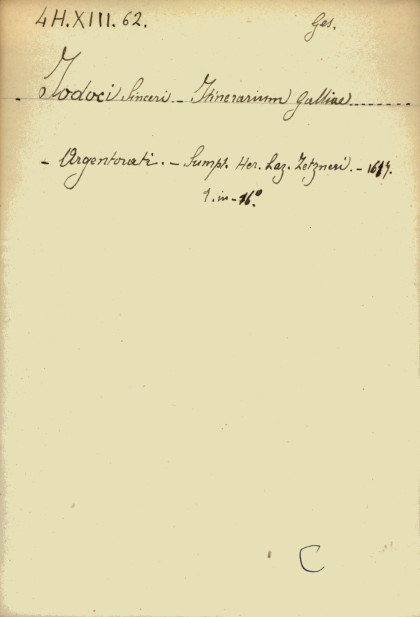 4H.XIII.62. Ges.
Jodoci Sinceri - Itinerarium Galliae........
- Argentorati. - Sumpt. Her. Laz. Zetzneri. - 1617.
1. in - 16º
C